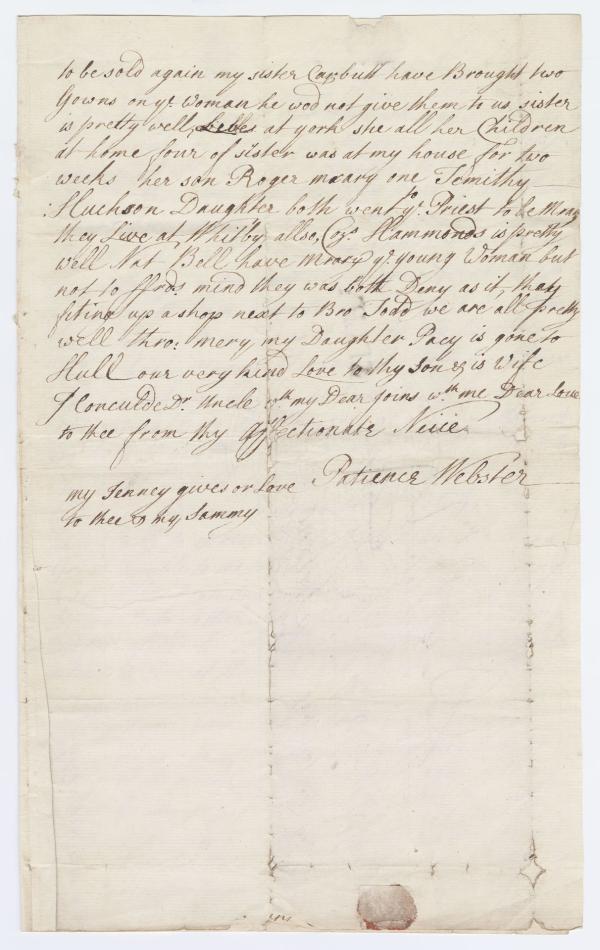 to be sold again my sister Carbutt have Brought two
Gowns on ye. woman he wod not give them to us sister
is pretty well, at york she all her Children
at home four of sister was at my house for two
weeks her son Roger mrary one Temithy
Huchson Daughter both went to ye. Priest to be Mray
they Live at Whitby allso, Hammonds is pretty
well Nat Bell have Mrary ye. young Woman but
not to ffrds. mind they was both Deny as it, thay
fiting up a shop next to Bro Todd we are all pretty
well thro: mery my Daughter Pacy is gone to
Hull our very kind Love to thy Son & is Wife
I Conculde Dr. Uncle wth my Dear joins wth me Dear Love
to thee from thy Affectionate Neice
Patience Webster
my Jenney gives or Love
to thee & my Sammy